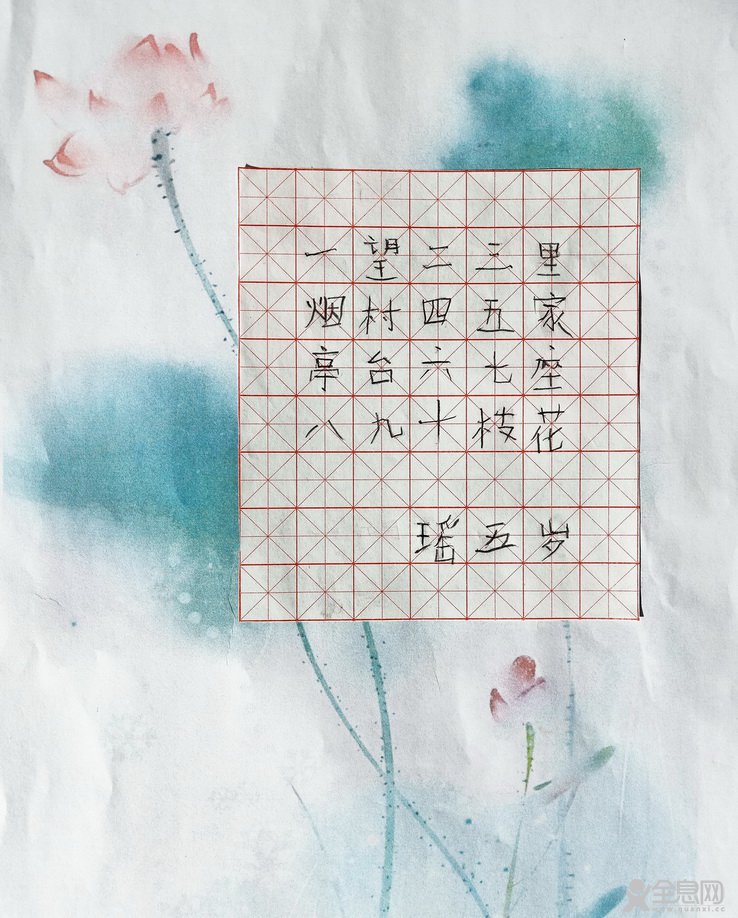 一望二三里
烟村四五家
亭台六七座
八九十枝花
瑶五岁
全息网
www.quanxi.cc